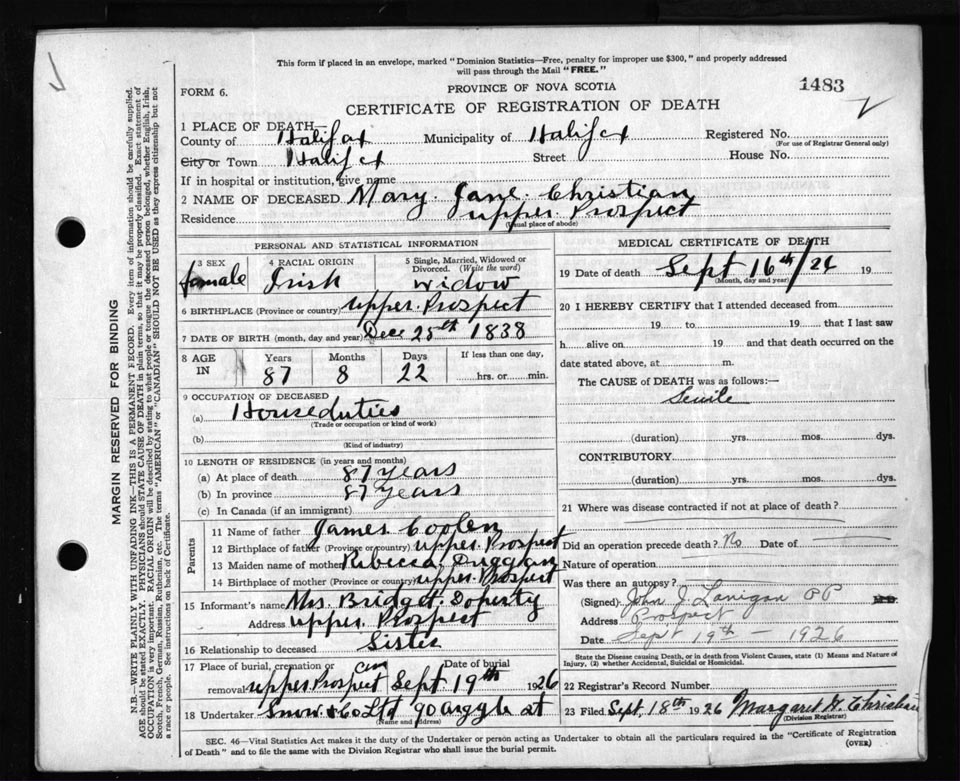 This form if placed in an envelope, marked "Dominion Statistics—Free, penalty for improper use $300," and properly addressed
will pass through the Mail "FREE."
FORM 6.
PROVINCE OF NOVA SCOTIA
1483
CERTIFICATE OF REGISTRATION OF DEATH
1 PLACE OF DEATH—
County of Halifax Municipality of Halifax Registered No.
(For use of Registrar General only)
City or Town Halifax Street House No.
If in hospital or institution, give name
2 NAME OF DECEASED Mary Jane Christian
Residence upper Prospect
(Usual place of abode)
PERSONAL AND STATISTICAL INFORMATION
3 SEX female
4 RACIAL ORIGIN Irish
5 Single, Married, Widowed or Divorced. (Write the word) widow
6 BIRTHPLACE (Province or country) upper Prospect
7 DATE OF BIRTH (month, day and year) Dec 25th 1838
8 AGE IN Years 87 Months 8 Days 22 If less than one day, hrs. or min.
9 OCCUPATION OF DECEASED
(a) Houseduties
(Trade or occupation or kind of work)
(b)
(Kind of industry)
10 LENGTH OF RESIDENCE (in years and months)
(a) At place of death 87 years
(b) In province 87 years
(c) In Canada (if an immigrant)
Parents
11 Name of father James Coolen
12 Birthplace of father (Province or country) upper Prospect
13 Maiden name of mother Ribecca Duggan
14 Birthplace of mother (Province or country) upper Prospect
15 Informant's name Mrs. Bridget Doherty
Address upper Prospect
16 Relationship to deceased Sister
17 Place of burial, cremation or removal upper Prospect cem Date of burial Sept. 19th 1926
18 Undertaker Snow & Co Ltd 90 argyle st
(Name and address)
MEDICAL CERTIFICATE OF DEATH
19 Date of death Sept 16th/26 19
(Month, day and year)
20 I HEREBY CERTIFY that I attended deceased from
19 to 19 that I last saw
h alive on 19 and that death occurred on the
date stated above, at m.
The CAUSE OF DEATH was as follows:—
Senile
(duration) yrs. mos. dys.
CONTRIBUTORY
(duration) yrs. mos. dys.
21 Where was disease contracted if not at place of death?
Did an operation precede death? No Date of
Nature of operation
Was there an autopsy?
(Signed) John J. Lanigan PP M.D.
Address Prospect
Date Sept 19th — 1926
State the Disease causing Death, or in death from Violent Causes, state (1) Means and Nature of
Injury, (2) whether Accidental, Suicidal or Homicidal.
22 Registrar's Record Number
23 Filed Sept. 18th 1926 Margaret H. Christian
(Division Registrar)
SEC. 46—Vital Statistics Act makes it the duty of the Undertaker or person acting as Undertaker to obtain all the particulars required in the "Certificate of Registration
of Death" and to file the same with the Division Registrar who shall issue the burial permit.
(OVER)
MARGIN RESERVED FOR BINDING
N.B.—WRITE PLAINLY WITH UNFADING INK—THIS IS A PERMANENT RECORD. Every item of information should be carefully supplied.
AGE should be stated EXACTLY. PHYSICIANS should STATE CAUSE OF DEATH in plain terms, so that it may be properly classified. Exact statement of
OCCUPATION is very important. RACIAL ORIGIN will be described by stating to what people or tongue the deceased person belonged, whether English, Irish,
Scotch, French, German, Russian, Ruthenian, etc. The terms "AMERICAN" or "CANADIAN" SHOULD NOT BE USED as they express citizenship but not
a race or people. See instructions on back of Certificate.